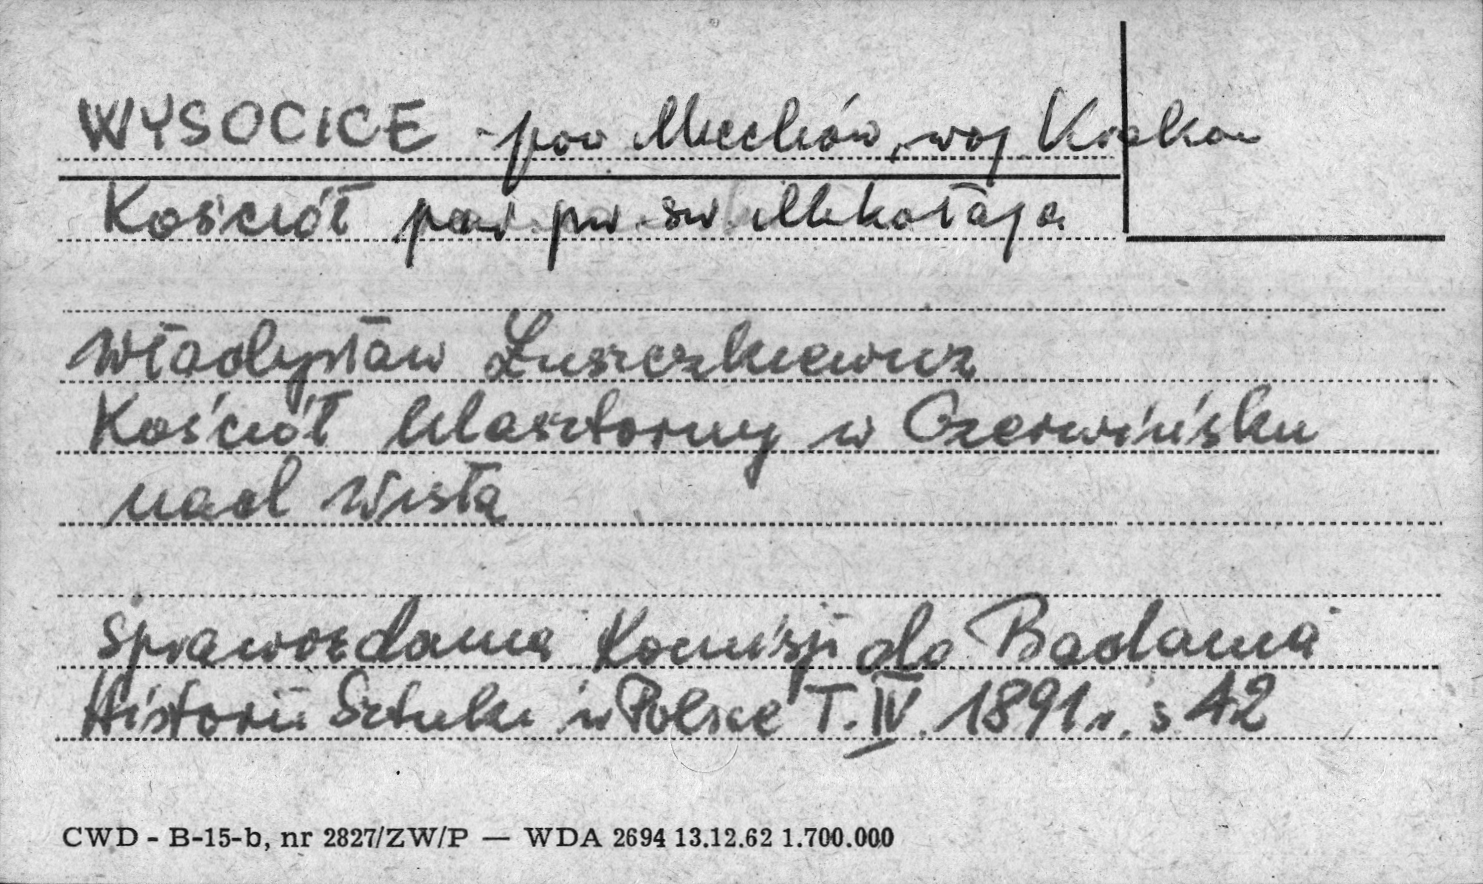 WYSOCICE - pow Miechów, woj Kraków
Kościół par. pw. św. Mikołaja
Władysław Łuszczkiewicz
Kościół klasztorny w Czerwińsku
nad Wisłą
Sprawozdania Komisji do Badania
Historii Sztuki w Polsce T. IV. 1891 r. s 42
CWD - B-15-b, nr 2827/ZW/P — WDA 2694 13.12.62 1.700.000